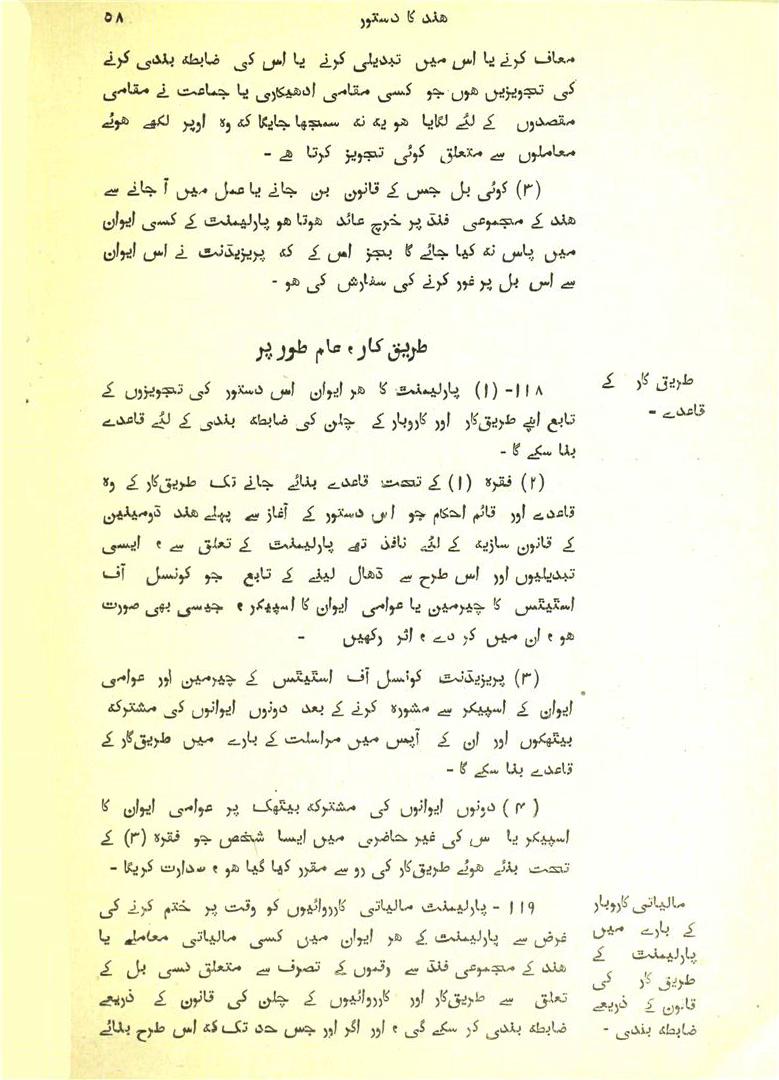 هند کا دستور
۵۸
معاف کرنے یا اس میں تبدیلی کرنے یا اس کی ضابطہ بندی کرنے
کی تجویزیں هوں جو کسی مقامی ادهیکاری یا جماعت نے مقامی
مقصدوں کے لئے لگایا هو یہ نہ سمجها جایگا کہ وہ اوپر لکهے هوئے
معاملوں سے متعلق کوئی تجویز کرتا هے -
(۳) کوئی بل جس کے قانون بن جانے یا عمل میں آ جانے سے
هند کے مجموعی فنڈ پر خرچ عائد هوتا هو پارلیمنٹ کے کسی ایوان
میں پاس نہ کیا جائے گا بجز اس کے کہ پریزیڈنٹ نے اس ایوان
سے اس بل پر غور کرنے کی سفارش کی هو -
طریق کار ، عام طور پر
طریق کار کے
قاعدے -
۱۱۸- (۱) پارلیمنٹ کا هر ایوان اس دستور کی تجویزوں کے
تابع اپنے طریق‌کار اور کاروبار کے چلن کی ضابطہ بندی کے لئے قاعدے
بنا سکے گا -
(۲) فقرہ (۱) کے تحت قاعدے بنائے جانے تک طریق‌کار کے وہ
قاعدے اور قائم احکام جو اس دستور کے آغاز سے پہلے هند ڈومینین
کے قانون سازیہ کے لئے نافذ تهے پارلیمنٹ کے تعلق سے ، ایسی
تبدیلیوں اور اس طرح سے ڈهال لینے کے تابع جو کونسل آف
اسٹیٹس کا چیرمین یا عوامی ایوان کا اسپیکر ، جیسی بهی صورت
هو ، ان میں کر دے ، اثر رکهیں -
(۳) پریزیڈنٹ کونسل آف اسٹیٹس کے چیرمین اور عوامی
ایوان کے اسپیکر سے مشورہ کرنے کے بعد دونوں ایوانوں کی مشترکہ
بیٹهکوں اور ان کے آپس میں مراسلت کے بارے میں طریق‌کار کے
قاعدے بنا سکے گا -
(۴) دونوں ایوانوں کی مشترکہ بیٹهک پر عوامی ایوان کا
اسپیکر یا س کی غیر حاضری میں ایسا شخص جو فقرہ (۳) کے
تحت بنئے هوئے طریق‌کار کی رو سے مقرر کیا گیا هو ، صدارت کریگا -
مالیاتی کاروبار
کے بارے میں
پارلیمنٹ کے
طریق کار کی
قانون کے ذریعے
ضابطہ بندی -
۱۱۹ - پارلیمنٹ مالیاتی کارروائیوں کو وقت پر ختم کرنے کی
غرض سے پارلیمنٹ کے هر ایوان میں کسی مالیاتی معاملے یا
هند کے مجموعی فنڈ سے رقموں کے تصرف سے متعلق کسی بل کے
تعلق سے طریق‌کار اور کارروائیوں کے چلن کی قانون کے ذریعے
ضابطہ بندی کر سکے گی ، اور اگر اور جس حد تک کہ اس طرح بنائے